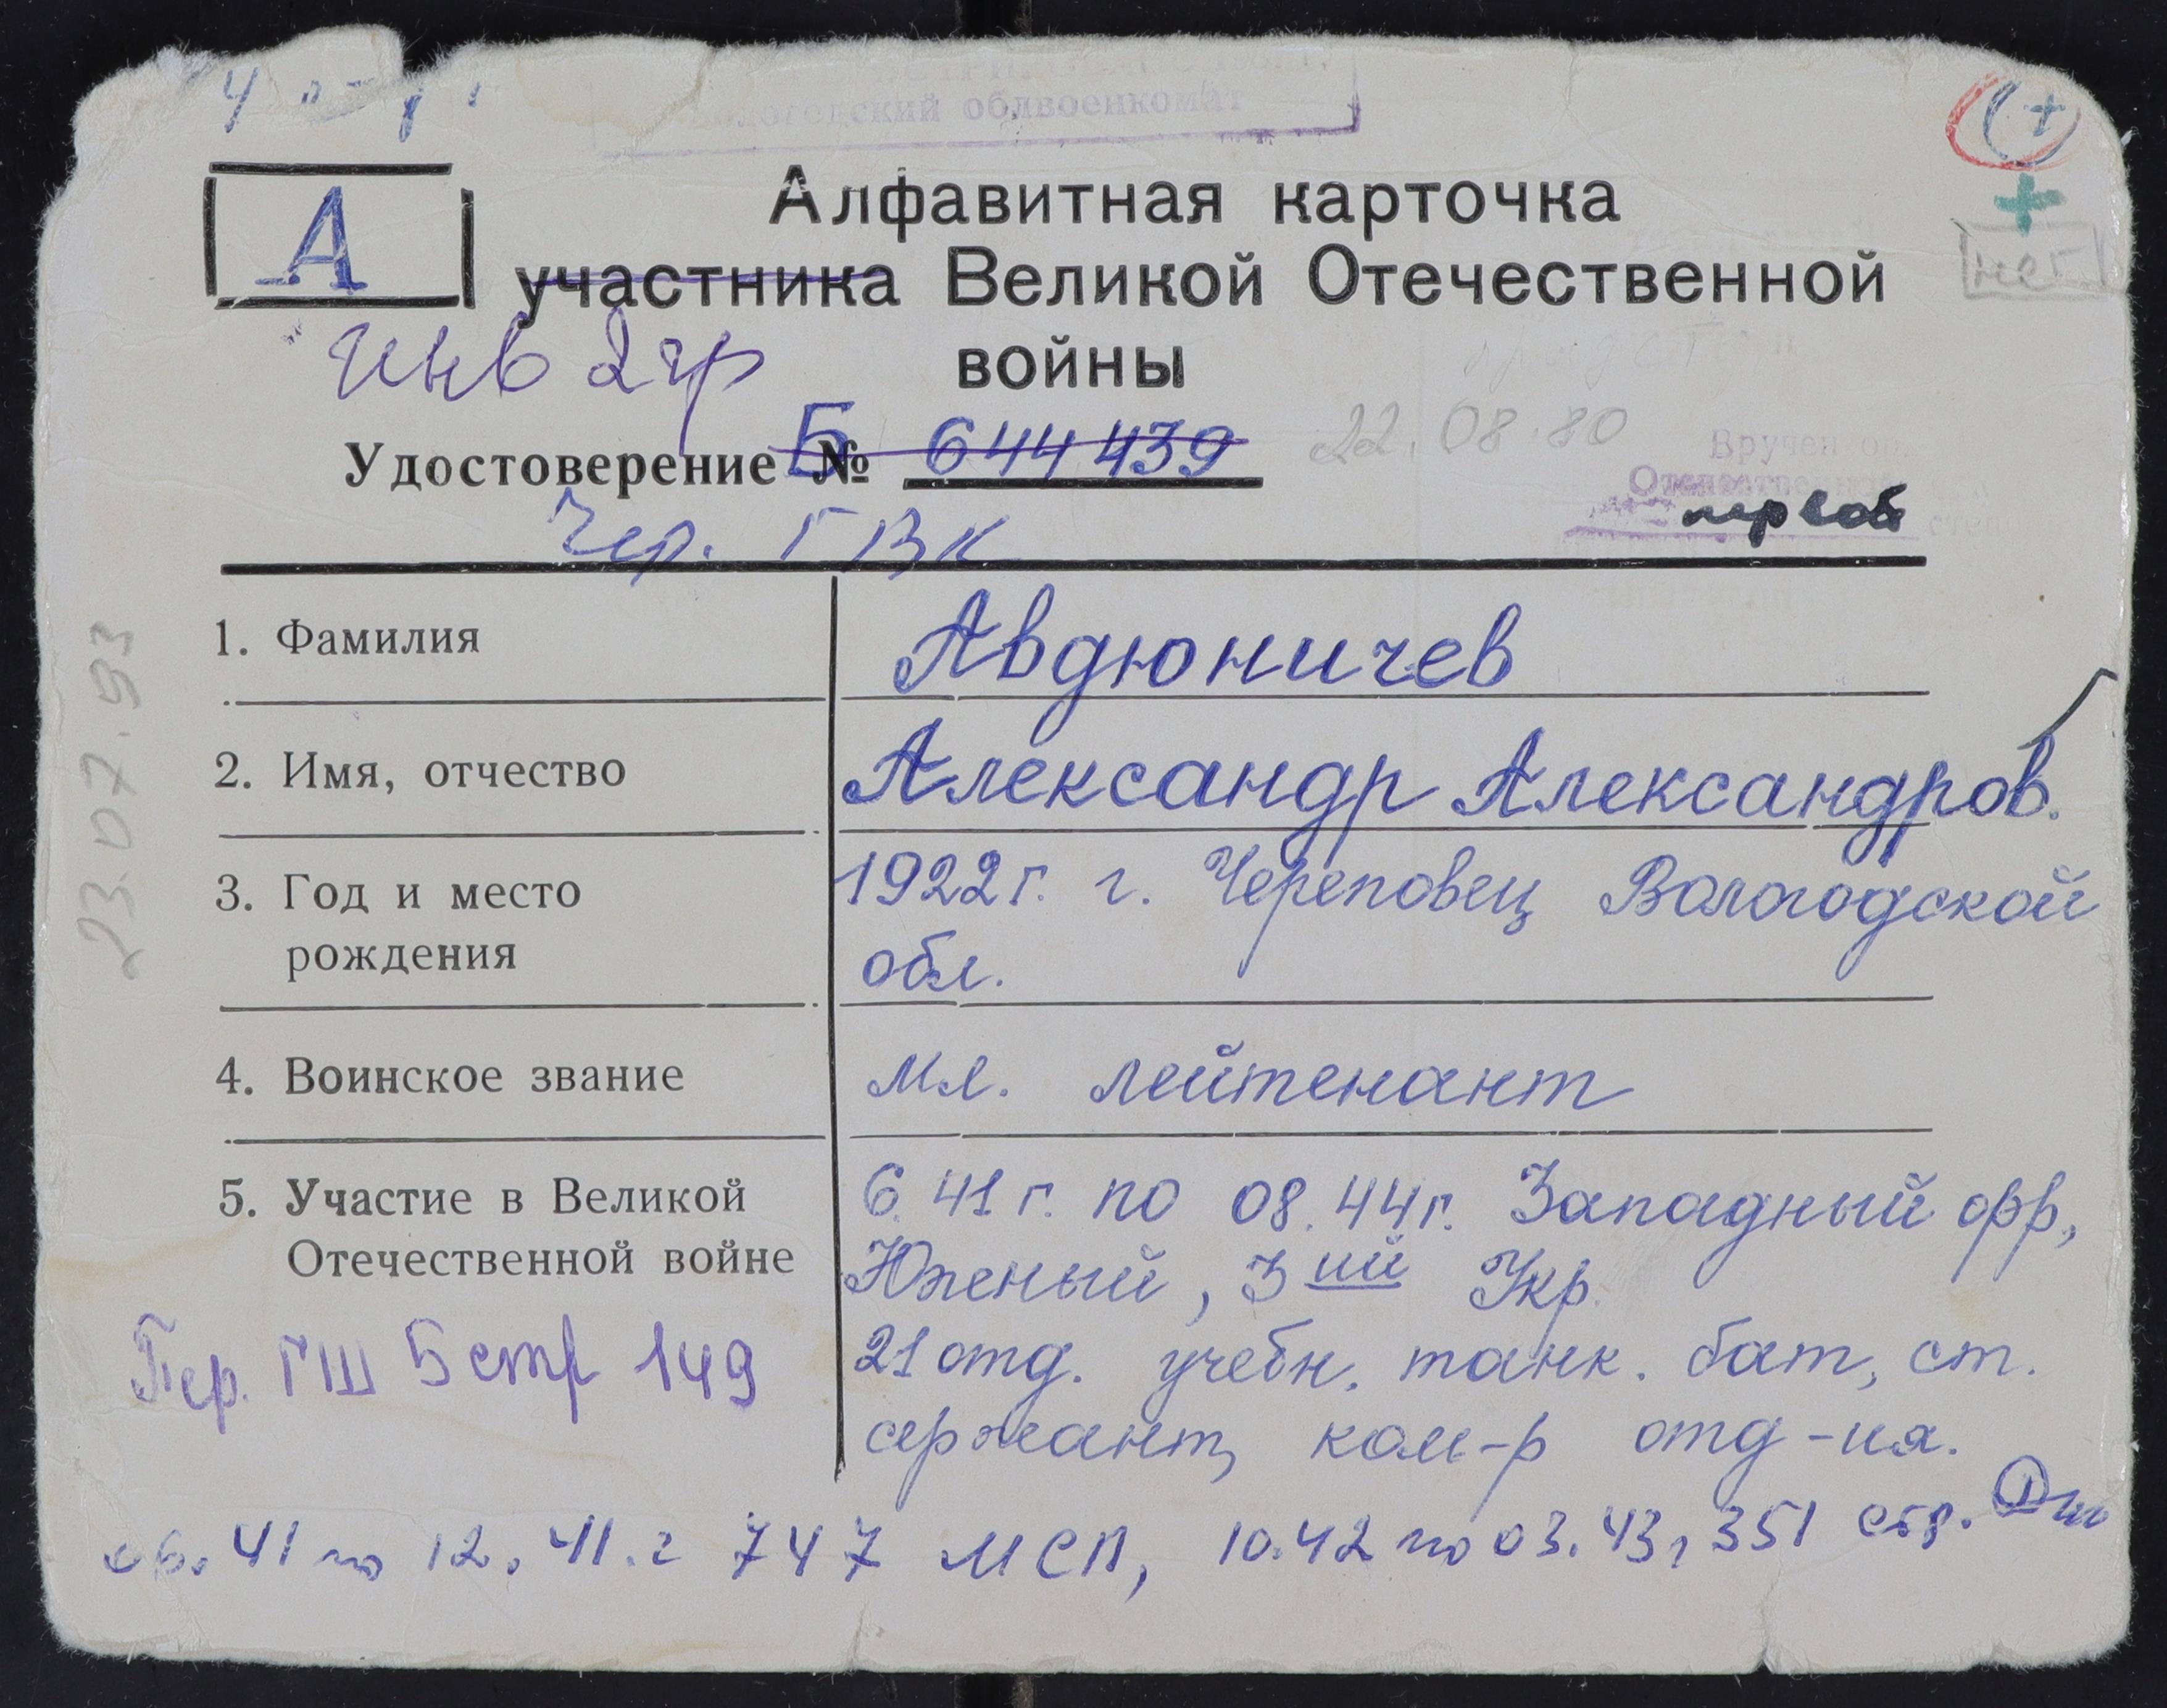 Вологодский облвоенкомат
А
Алфавитная карточка
участника Великой Отечественной
войны
нет
инв 2 гр
Удостоверение Б № 644439
22.08.80
Вручен
Отечественной
первой
степ
Чер. ГВК
23.07.93
1. Фамилия Авдюничев
2. Имя, отчество Александр Александров.
3. Год и место рождения 1922 г. г. Череповец Вологодской
обл.
4. Воинское звание мл. лейтенант
5. Участие в Великой Отечественной войне 6.41 г. по 08.44 г. Западный фр,
Южный, 3 ий Укр.
21 отд. учебн. танк. бат, ст.
сержант, ком-р отд-ия.
Пер. ГШ 5 стр 149
06.41 по 12.41.г 747 МСП, 10.42 по 03.43, 351 стр.